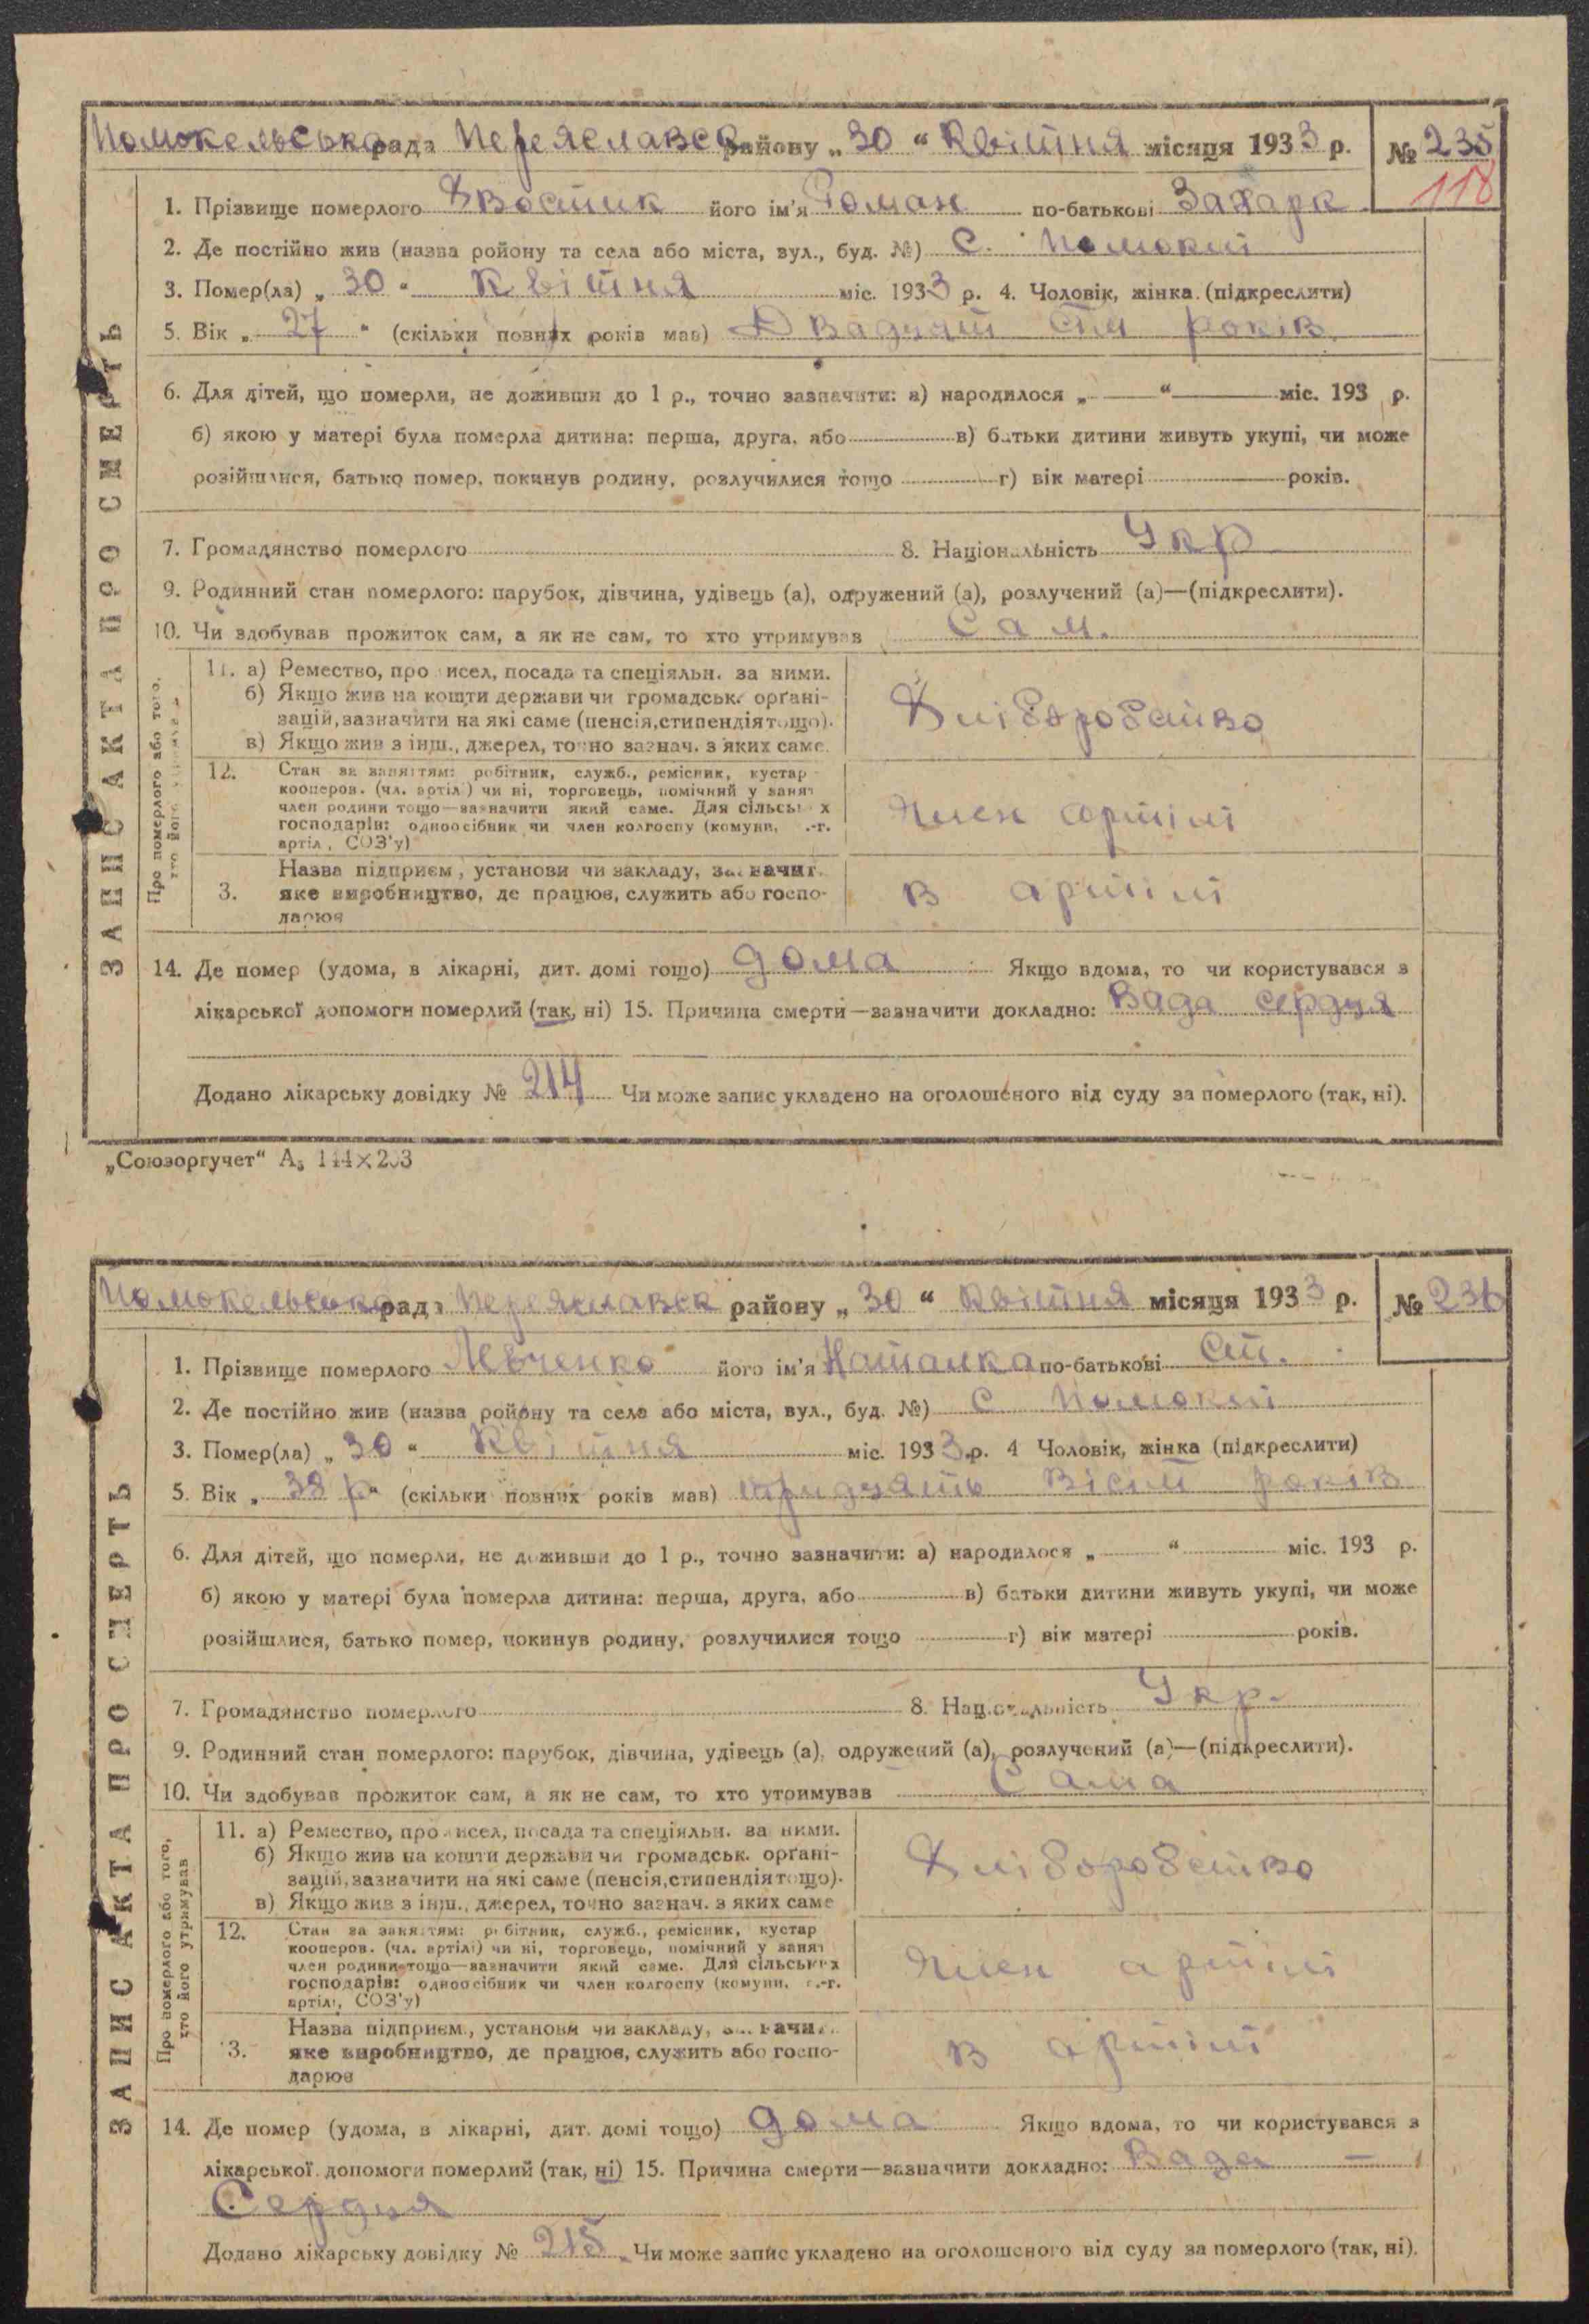 Помокельська рада Переяславск району „30“ Квітня місяця 1933 р. № 235
118
1. Прізвище померлого Хвостик його ім'я Роман по-батькові Захарк
2. Де постійно жив (назва ройону та села або міста, вул., буд. №) С. Помоклі
3. Помер(ла) „30“ Квітня міс. 1933 р. 4. Чоловік, жінка (підкреслити)
5. Вік „27“ (скільки повних років мав) Двадцять сім років
6. Для дітей, що померли, не доживши до 1 р., точно зазначити: а) народилося „ “ міс. 193 р.
б) якою у матері була померла дитина: перша, друга, або в) батьки дитини живуть укупі, чи може
розійшлися, батько помер, покинув родину, розлучилися тощо г) вік матері років.
7. Громадянство померлого 8. Національність Укр
9. Родинний стан померлого: парубок, дівчина, удівець (а), одружений (а), розлучений (а)—(підкреслити).
10. Чи здобував прожиток сам, а як не сам, то хто утримував Сам.
ЗАПИС АКТА ПРО СМЕРТЬ
Про померлого або того,
хто його утримував
11. а) Ремество, про исел, посада та спеціяльн. за ними.
б) Якщо жив на кошти держави чи громадськ. орґані-
зацій, зазначити на які саме (пенсія, стипендія тощо).
в) Якщо жив з інш., джерел, точно зазнач. з яких саме.
Хліборобство
12. Стан за заняттям: робітник, служб., ремісник, кустар
кооперов. (чл. артілі) чи ні, торговець, помічний у занят
член родини тощо—зазначити який саме. Для сільських
господарів: одноосібник чи член колгоспу (комуни, с.-г.
артіл, СОЗ'у)
Член артілі
3. Назва підприєм., установи чи закладу, зазначит.
яке виробництво, де працює, служить або госпо-
дарює
в артілі
14. Де помер (удома, в лікарні, дит. домі тощо) дома Якщо вдома, то чи користувався з
лікарської допомоги померлий (так, ні) 15. Причина смерти—зазначити докладно: Вада сердця
Додано лікарську довідку № 214 Чи може запис укладено на оголошеного від суду за померлого (так, ні).
„Союзоргучет“ А₅ 144×203
Помокельська рада Переяславск району „30“ Квітня місяця 1933 р. № 236
1. Прізвище померлого Левченко його ім'я Наталка по-батькові Ст.
2. Де постійно жив (назва ройону та села або міста, вул., буд. №) С Помоклі
3. Помер(ла) „30“ Квітня міс. 1933 р. 4 Чоловік, жінка (підкреслити)
5. Вік „38 р“ (скільки повних років мав) тридцять вісім років
6. Для дітей, що померли, не доживши до 1 р., точно зазначити: а) народилося „ “ міс. 193 р.
б) якою у матері була померла дитина: перша, друга, або в) батьки дитини живуть укупі, чи може
розійшлися, батько помер, покинув родину, розлучилися тощо г) вік матері років.
7. Громадянство померлого 8. Національність Укр.
9. Родинний стан померлого: парубок, дівчина, удівець (а), одружений (а), розлучений (а)—(підкреслити).
10. Чи здобував прожиток сам, а як не сам, то хто утримував Сама
ЗАПИС АКТА ПРО СМЕРТЬ
Про померлого або того,
хто його утримував
11. а) Ремество, про исел, посада та спеціяльн. за ними.
б) Якщо жив на кошти держави чи громадськ. орґані-
зацій, зазначити на які саме (пенсія, стипендія тощо).
в) Якщо жив з інш., джерел, точно зазнач. з яких саме
Хліборобство
12. Стан за заняттям: робітник, служб., ремісник, кустар
кооперов. (чл. артілі) чи ні, торговець, помічний у занят
член родини тощо—зазначити який саме. Для сільських
господарів: одноосібник чи член колгоспу (комуни, с.-г.
артілі, СОЗ'у)
Член артілі
3. Назва підприєм., установи чи закладу, зазначит.
яке виробництво, де працює, служить або госпо-
дарює
в артілі
14. Де помер (удома, в лікарні, дит. домі тощо) дома Якщо вдома, то чи користувався з
лікарської допомоги померлий (так, ні) 15. Причина смерти—зазначити докладно: Вада —
Сердця
Додано лікарську довідку № 215 Чи може запис укладено на оголошеного від суду за померлого (так, ні).